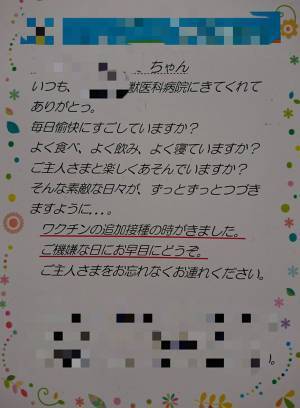 ちゃん
いつも、獣医科病院にきてくれて
ありがとっ。
毎日愉快にすごしていますか？
よく食べ、よく飲み、よく寝ていますか？
ご主人さまと楽しくあそんでいますか？
そんな素敵な日々が、ずっとずっとつづき
ますように．．．。
ワクチンの追加接種の時がきました。
ご機嫌な日にお早目にどうぞ。
ご主人さまをお忘れなくお連れください。